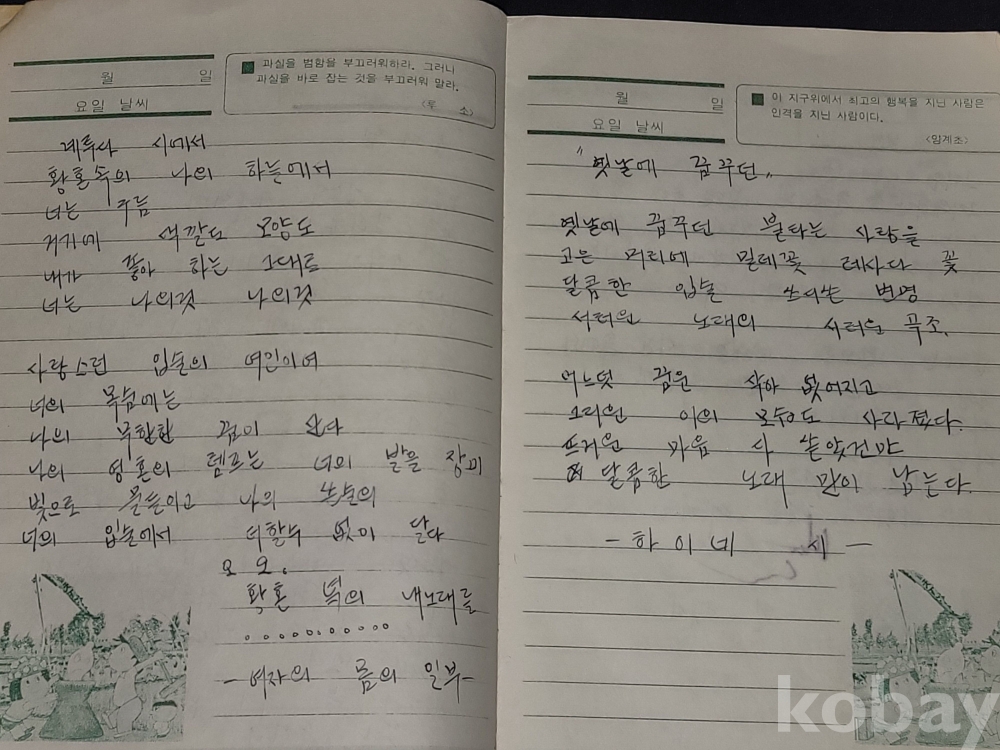 월 일
요일 날씨
과실을 범함을 부끄러워하라. 그러나
과실을 바로 잡는 것을 부끄러워 말라.
〈루 소〉
시에서
황혼속의 나의 하늘에서
너는 구름
거기에 색깔도 모양도
내가 좋아 하는 그대로
너는 나의것 나의것
사랑스런 입술의 여인이여
너의 목숨에는
나의 무한한 꿈이 산다
나의 영혼의 램프는 너의 발을 장미
빛으로 물들이고 나의
너의 입술에서 더할수 없이 달다
오 오.
황혼 녘의 내노래를
...........
-여자의 몸의 일부-
월 일
요일 날씨
이 지구위에서 최고의 행복을 지닌 사람은
인격을 지닌 사람이다.
〈임계조〉
"옛날에 꿈꾸던"
옛날에 꿈꾸던 불타는 사랑을
고은 머리에 밀레꽃 레사다 꽃
달콤한 입술 쓰디쓴 변명
서러운 노래의 서러운 곡조.
어느덧 꿈은 삭아 없어지고
그리운 이의 모습도 사라졌다.
뜨거운 마음 다 쏟았건만
달콤한 노래 만이 남는다.
-하이네 시-
kobay